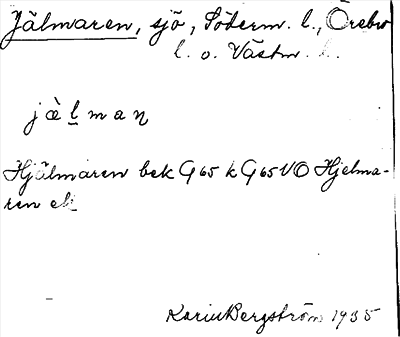 Jälmaren, sjö, Söderm. l., Örebro
l. o. Västm. l.
jälman
Hjälmaren bek G 65 k G 65 VO Hjelma-
ren ek
Karin Bergström 1935